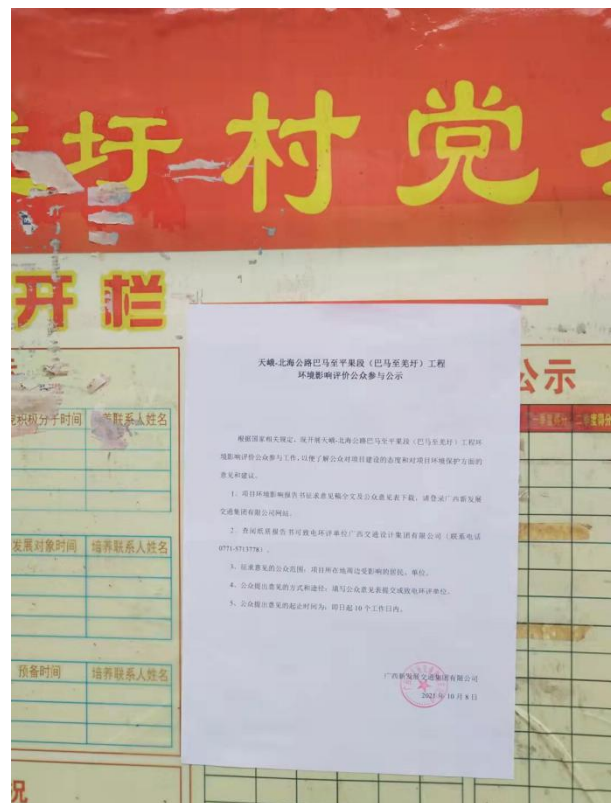 圩村党
开栏
公示
积极分子时间
养联系人姓名
发展对象时间
培养联系人姓名
预备时间
培养联系人姓名
况
天峨-北海公路巴马至平果段（巴马至羌圩）工程
环境影响评价公众参与公示
根据国家相关规定，现开展天峨-北海公路巴马至平果段（巴马至羌圩）工程环
境影响评价公众参与工作，以便了解公众对项目建设的态度和对项目环境保护方面的
意见和建议。
1、项目环境影响报告书征求意见稿全文及公众意见表下载，请登录广西新发展
交通集团有限公司网站。
2、查阅纸质报告书可致电环评单位广西交通设计集团有限公司（联系电话
0771-5713778）。
3、征求意见的公众范围：项目所在地周边受影响的居民、单位。
4、公众提出意见的方式和途径：填写公众意见表提交或致电环评单位。
5、公众提出意见的起止时间为：即日起 10 个工作日内。
广西新发展交通集团有限公司
2021 年 10 月 8 日